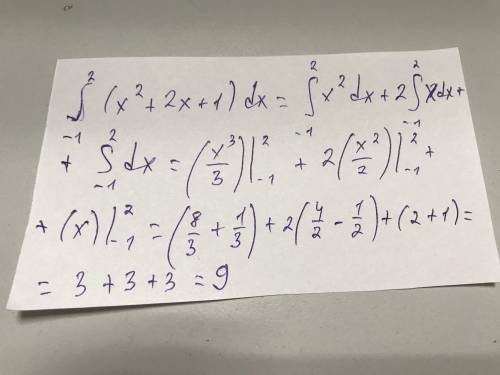 ∫₋₁² (x² + 2x + 1) dx = ∫₋₁² x² dx + 2 ∫₋₁² x dx +
+ ∫₋₁² dx = (x³/3)|₋₁² + 2(x²/2)|₋₁² +
+ (x)|₋₁² = (8/3 + 1/3) + 2(4/2 - 1/2) + (2 + 1) =
= 3 + 3 + 3 = 9